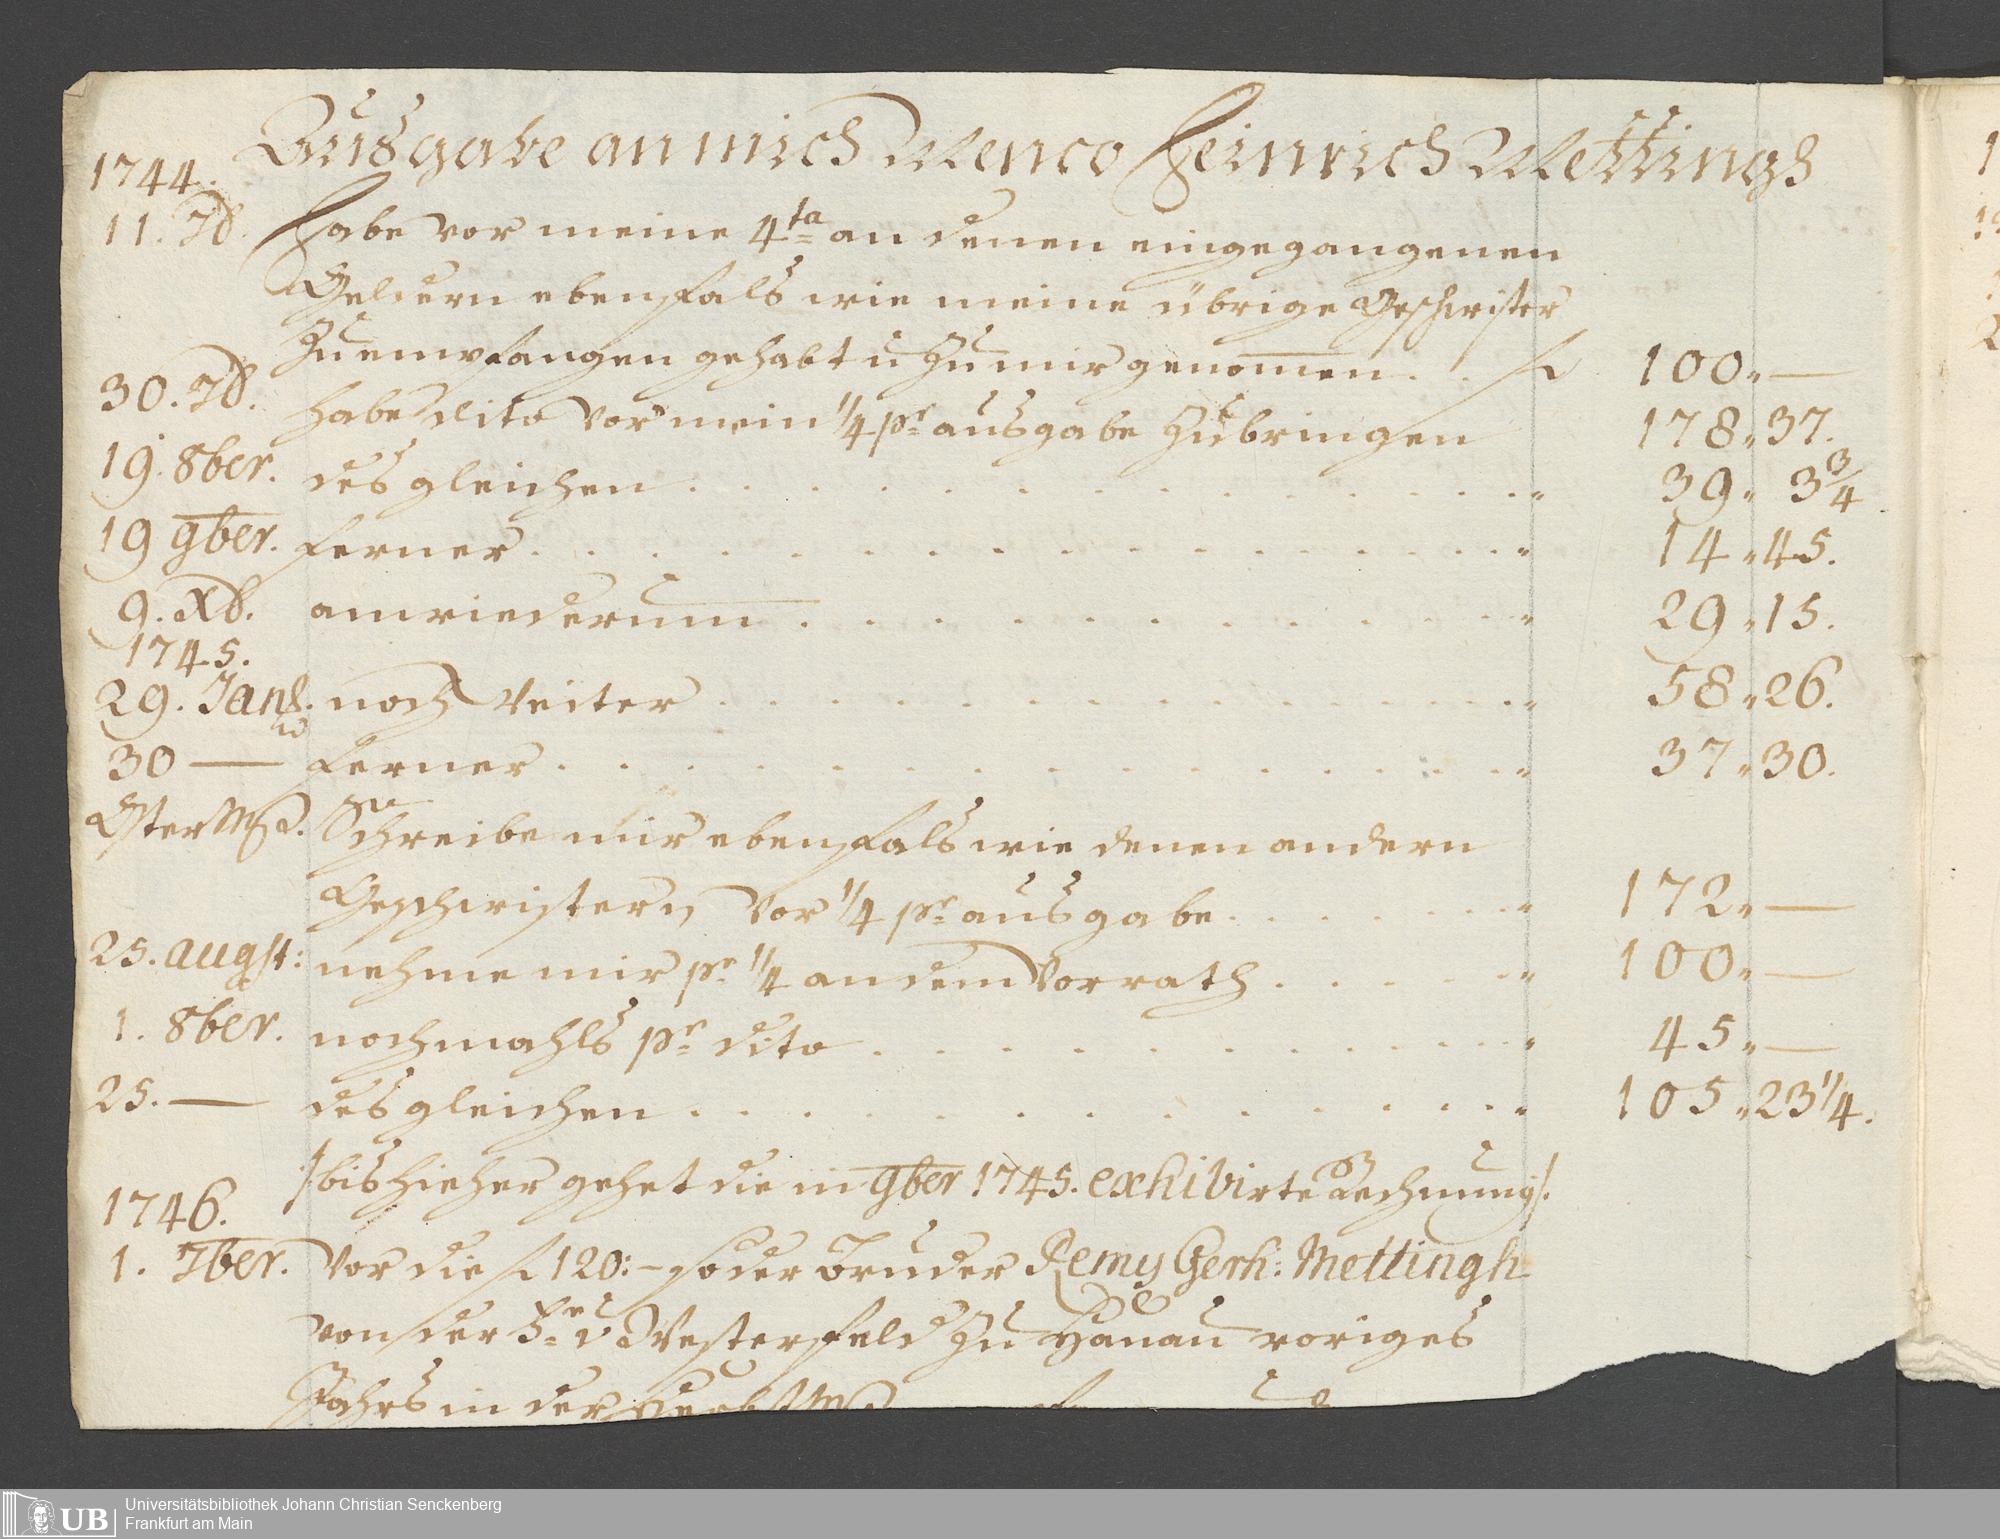 Ausgabe an mich Menco Heinrich Mettingh
1744.
11. 7b. Habe vor meine 4ta an denen eingegangenen
Geldern ebenfals wie meine übrige Geschwister
Zu empfangen gehabt u Zu mir genomen . . f 100 „ —
30. 7b. habe dito vor mein 1/4 pr ausgabe Zu bringen 178 „ 37.
19. 8ber. desgleichen . . . „ 39 „ 3 3/4
19 9ber. ferner . . . „ 14 „ 45.
9. Xb. anwiederum . . . „ 29 „ 15.
1745.
29. Jan. noch weiter . . . „ 58 „ 26.
30 — ferner . . . „ 37 „ 30.
Oster Mß. Schreibe mir ebenfals wie denen andern
Geschwistern vor 1/4 pr ausgabe . . . „ 172 „ —
25. augst: nehme mir pr 1/4 an dem Vorrath . . . „ 100 „ —
1. 8ber. nochmahls pr dito . . . „ 45 „ —
25. — desgleichen . . . „ 105 „ 23 1/4.
/: bis hieher gehet die in 9ber 1745. exhibirte Rechnung /.
1746.
1. 7ber. Vor die f 120:— so der Bruder Remy Gerh: Mettingh
von der Fr v Westerfeld Zu Hanau voriges
Jahrs in der Herbst Mß
Universitätsbibliothek Johann Christian Senckenberg
UB Frankfurt am Main